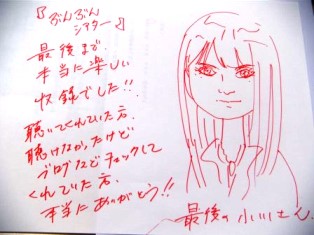 『ぶんぶん
シアター』
最後まで
本当に楽しい
収録でした!!
聴いてくれていた方、
聴けなかったけど
ブログなどでチェックして
くれていた方、
本当にありがとう!!
最後の小川さん。